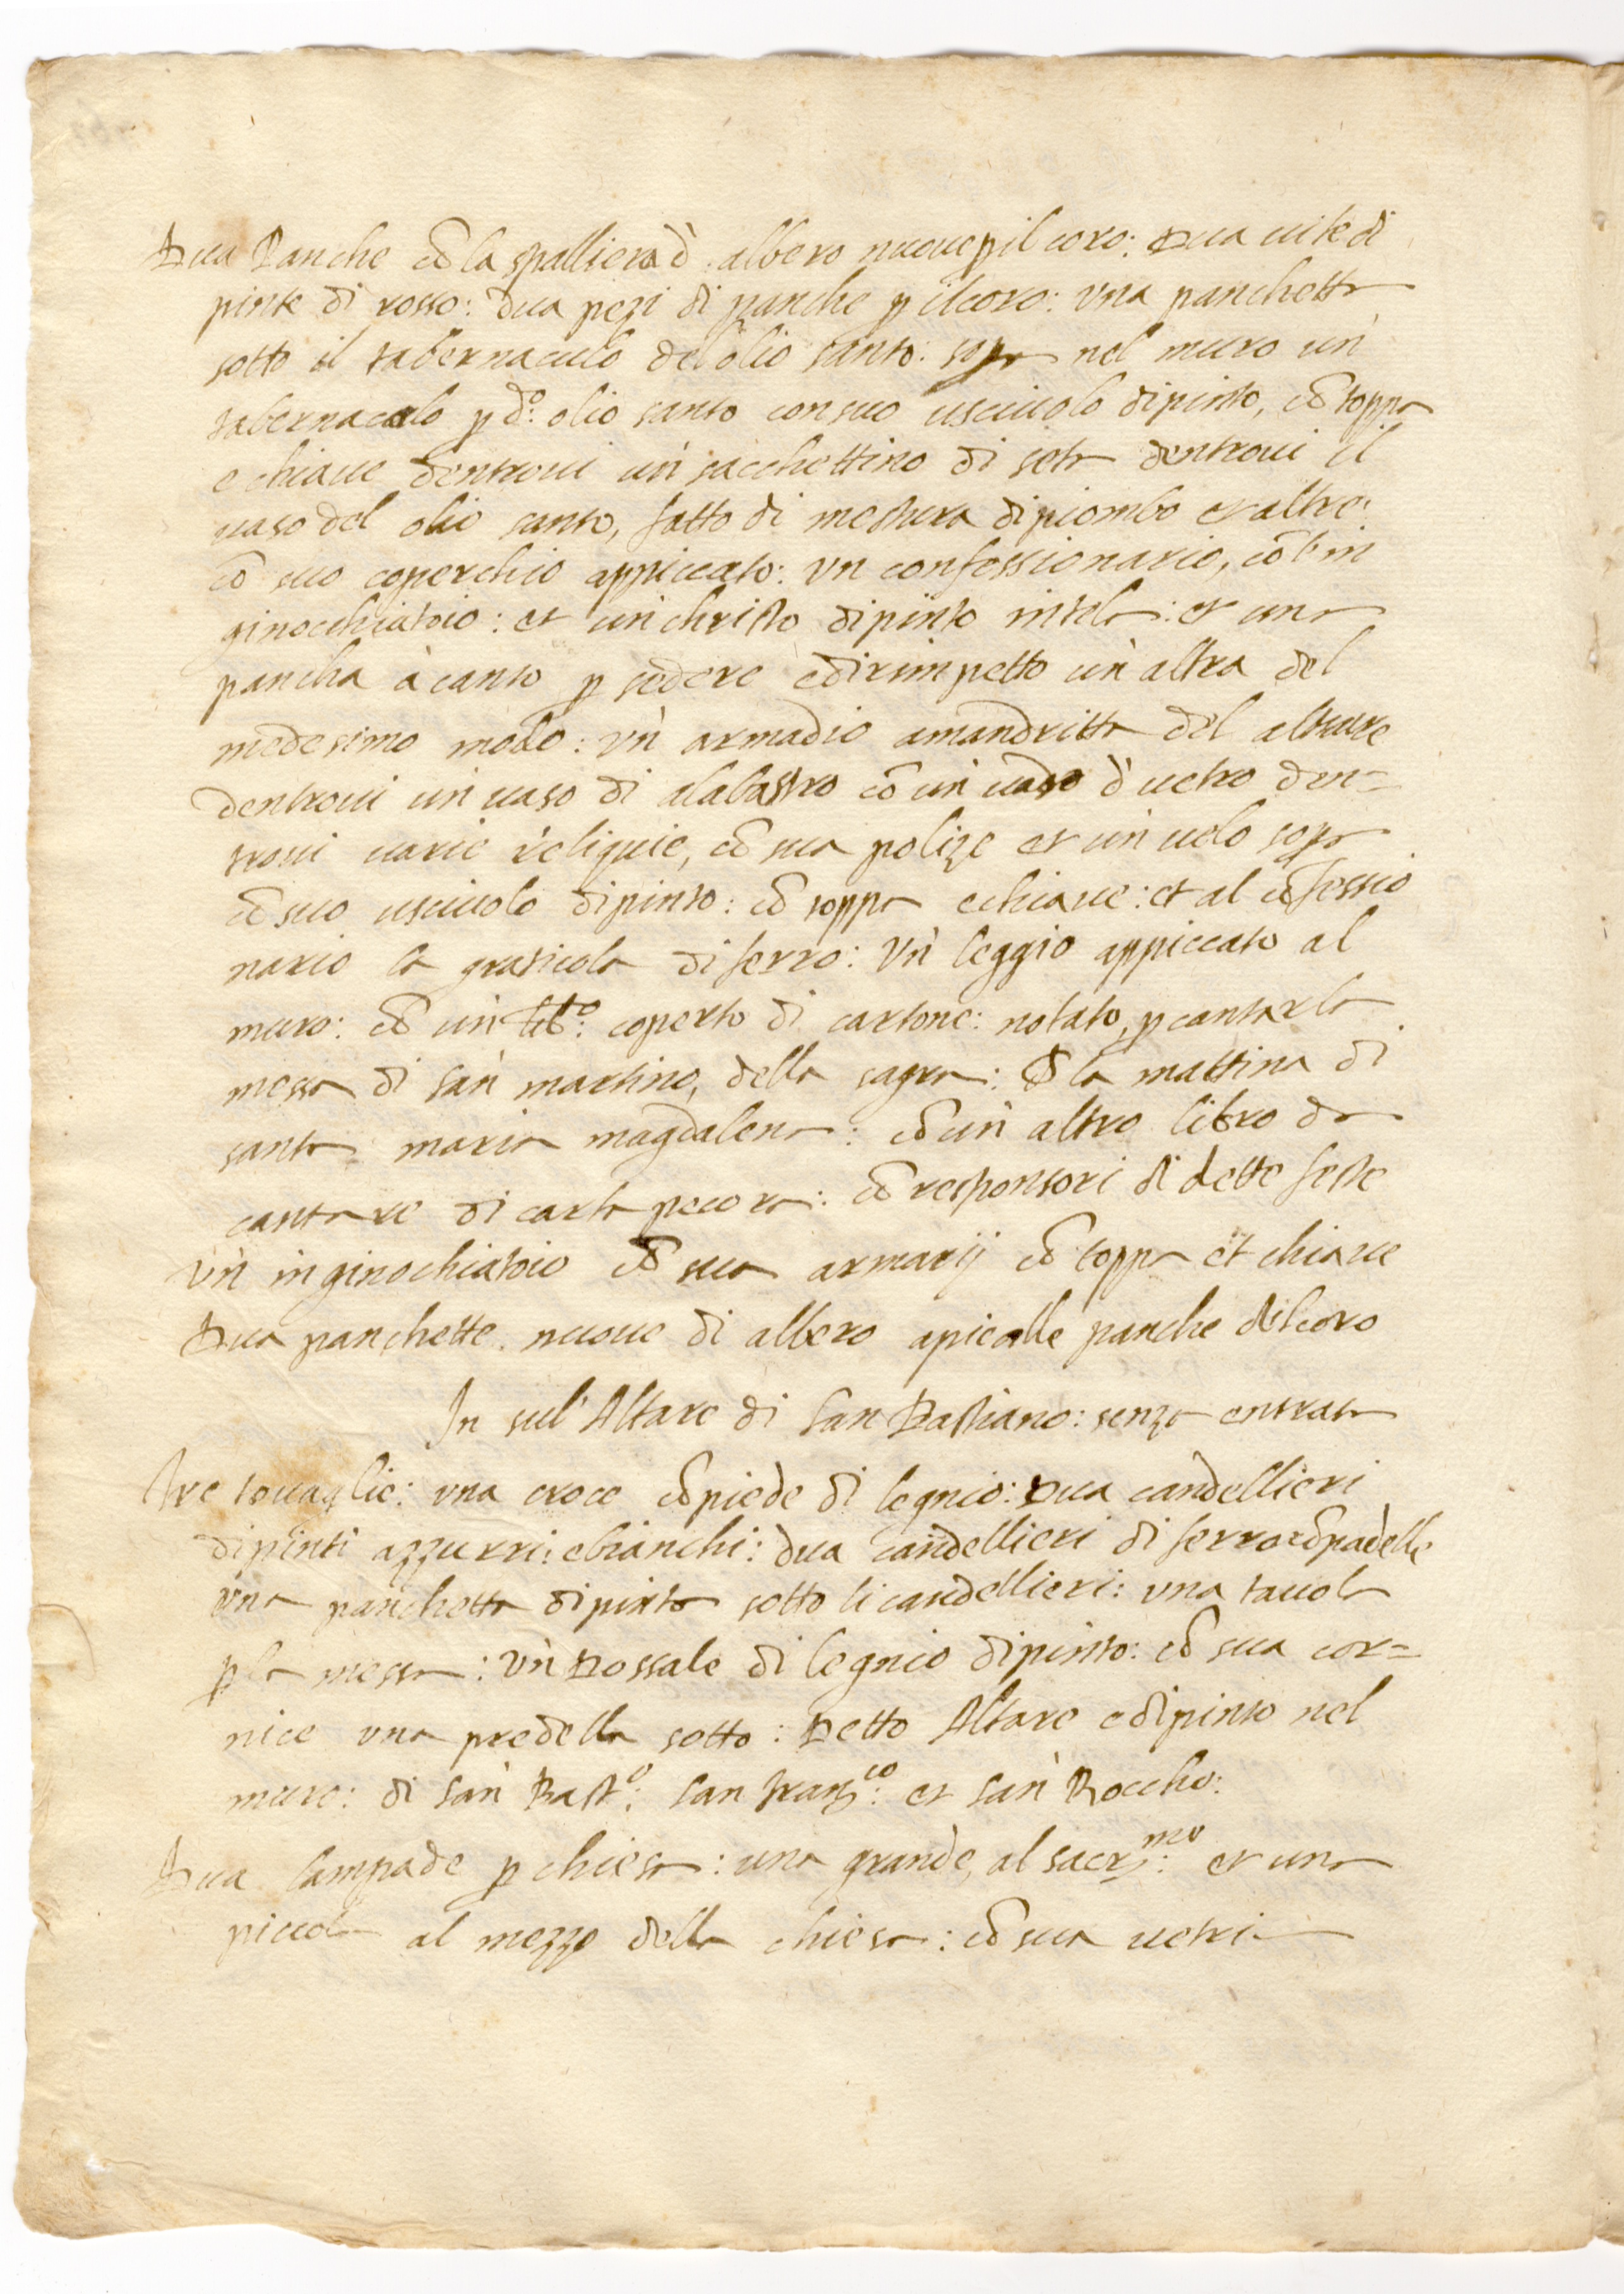 Dua Panche cō la spalliera d'albero nuove ꝑ il coro: Dua vite di
pinte di rosso: dua pezi di panche ꝑ il coro: una panchetta
sotto il tabernaculo del olio santo: sopra nel muro un'
tabernacolo ꝑ dº: olio santo con suo usciuolo dipinto, cō toppa
e chiave dentroui un' sacchettino di seta dentroui il
uaso del olio santo, fatto di mestura di piombo et altre:
cō suo coperchio appiccato: un confessionario, cō l'in
ginocchiatoio: et un' christo dipinto in tela: et una
pancha à canto ꝑ sedere e dirimpetto un' altra del
medesimo modo: un' armadio amandritta del altare
dentroui un' uaso di alabastro cō un' uaso d' uetro den=
troui uarie reliquie, cō sua polize et un' uelo sopra
cō suo usciuolo dipinto: cō toppa e chiaue: et al cōfessio
nario la graticola di ferro: Un' leggio appiccato al
muro: cō un' libº: coperto di cartone: notato, ꝑ cantar la
messa di san' martino, della sagra: & la mattina di
santa maria magdalena: cō un' altro libro da
cantare di carta pecora: cō responsori di dette feste
un' inginochiatoio cō sua armarij cō toppa et chiaue
Dua panchette nuoue di albero apie alle panche del coro
In sul' Altare di San Bastiano: senza entrata
Tre touaglie: una croce cō piede di legnio: Dua candellieri
dipinti azzurri: e bianchi: dua candellieri di ferro cō padelle
una panchetta dipinta sotto li candellieri: una tauola
ꝑ la messa: Un' Dossale di legnio dipinto: cō sua cor=
nice una predella sotto: Detto Altare e dipinto nel
muro: di san' Bastº: san franᶜᵒ: et san' Roccho:
Dua lampade ꝑ chiesa: una grande, al sacrᵐᵒ: et una
piccola al mezzo della chiesa: cō sua uetri